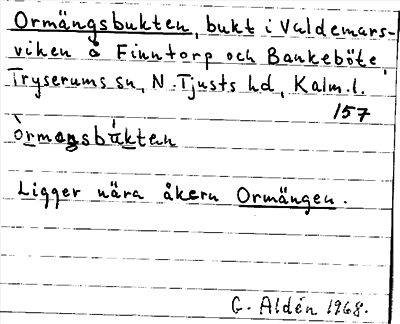 Ormängsbukten, bukt i Valdemars-
viken å Finntorp och Bankeböte,
Tryserums sn, N. Tjusts hd, Kalm. l.
157
òrmaŋsbúktan
Ligger nära åkern Ormängen.
G. Aldén 1968.